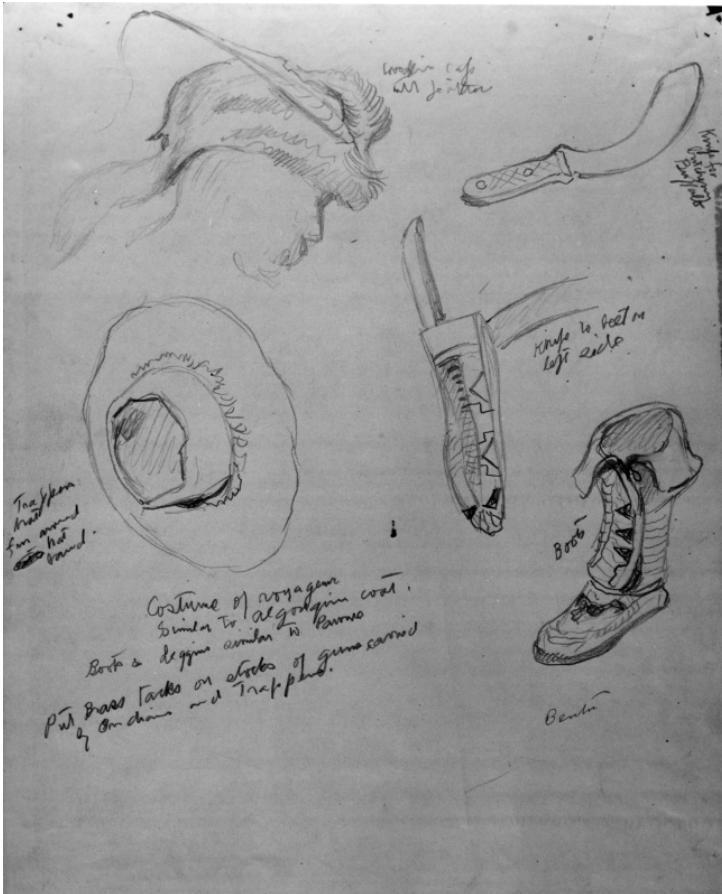 cap
with feather
Knife for
butchering
Buffalo
Knife to belt on
left side
Trappers
hat
fur around
hat
band.
Boots
Costume of voyageur
Similar to algonquin coat.
Boots & leggins similar to Pawnee
Put Brass Tacks on stocks of guns carried
by Indians and Trappers.